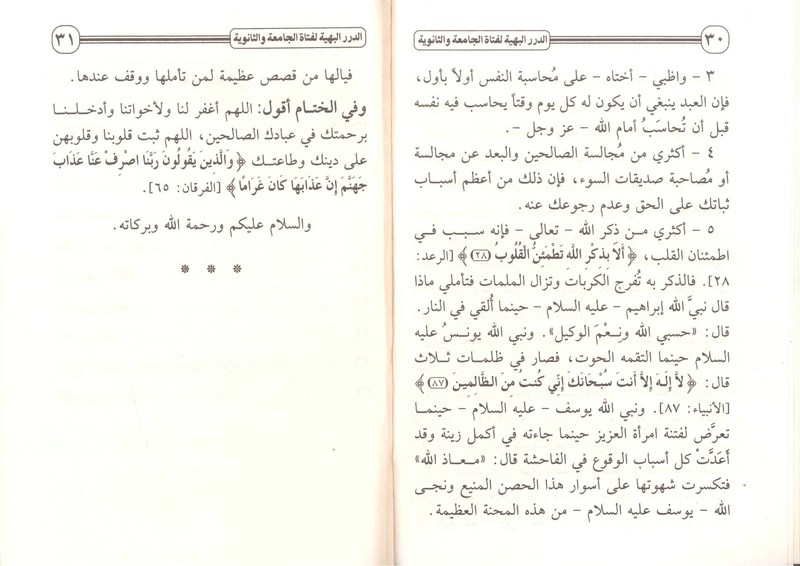 ٣٠
الدرر البهية لفتاة الجامعة والثانوية
٣ - واظبي - أختاه - على مُحاسبة النفس أولاً بأول،
فإن العبد ينبغي أن يكون له كل يوم وقتاً يحاسب فيه نفسه
قبل أن تُحاسَبُ أمام الله - عز وجل - .
٤ - أكثري من مُجالسة الصالحين والبعد عن مجالسة
أو مُصاحبة صديقات السوء، فإن ذلك من أعظم أسباب
ثباتك على الحق وعدم رجوعك عنه.
٥ - أكثري مـن ذكر الله - تعالى - فإنه سـبب فـي
اطمئنان القلب، ﴿أَلاَ بِذِكْرِ اللَّهِ تَطْمَئِنُّ الْقُلُوبُ (٢٨)﴾ [الرعد:
٢٨]. فالذكر به تُفرج الكربات وتزال الملمات فتأملي ماذا
قال نبيَّ الله إبراهيم - عليه السلام - حينما أُلقي في النار.
قال: «حسبي الله ونِعْمَ الوكيل». ونبي الله يونـسُ عليه
السلام حينما التقمه الحوت، فصار في ظلمات ثـلاث
قال: ﴿لاَّ إِلَهَ إِلاَّ أَنتَ سُبْحَانَكَ إِنِّي كُنتُ مِنَ الظَّالِمِينَ (٨٧)﴾
[الأنبياء: ٨٧]. ونبي الله يوسف - عليه السلام - حينمـا
تعرَّض لفتنة امرأة العزيز حينما جاءته في أكمل زينة وقد
أَعَدَّتْ كل أسباب الوقوع في الفاحشة قال: «معـاذ الله»
فتكسرت شهوتها على أسوار هذا الحصن المنيع ونجـى
الله - يوسف عليه السلام - من هذه المحنة العظيمة.
الدرر البهية لفتاة الجامعة والثانوية
٣١
فيالها من قصص عظيمة لمن تأملها ووقف عندها.
وفي الختـام أقول: اللهم أغفر لنا ولأخواتنا وأدخلـنـا
برحمتك في عبادك الصالحين، اللهم ثبت قلوبنا وقلوبهن
على دينك وطاعتـك ﴿وَالَّذِينَ يَقُولُونَ رَبَّنَا اصْرِفْ عَنَّا عَذَابَ
جَهَنَّمَ إِنَّ عَذَابَهَا كَانَ غَرَامًا﴾ [الفرقان: ٦٥].
والسلام عليكم ورحمة الله وبركاته.
* * *